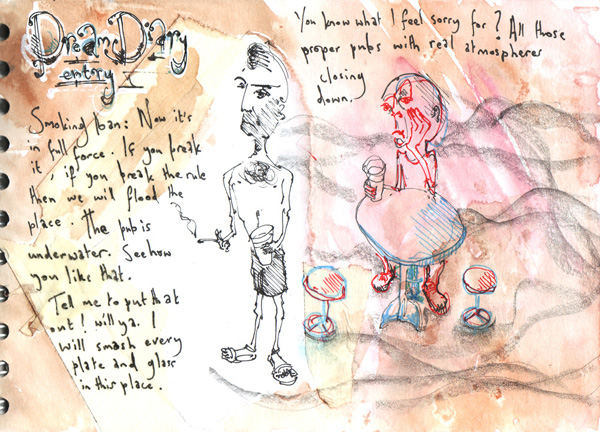 Dream Diary
entry
Smoking ban: Now it's
in full force. If you break
it, if you break the rule
then we will flood the
place. The pub is
underwater. See how
you like that.
Tell me to put that
out! will ya. I
will smash every
plate and glass
in this place.
You know what I feel sorry for? All those
proper pubs with real atmospheres
closing
down.